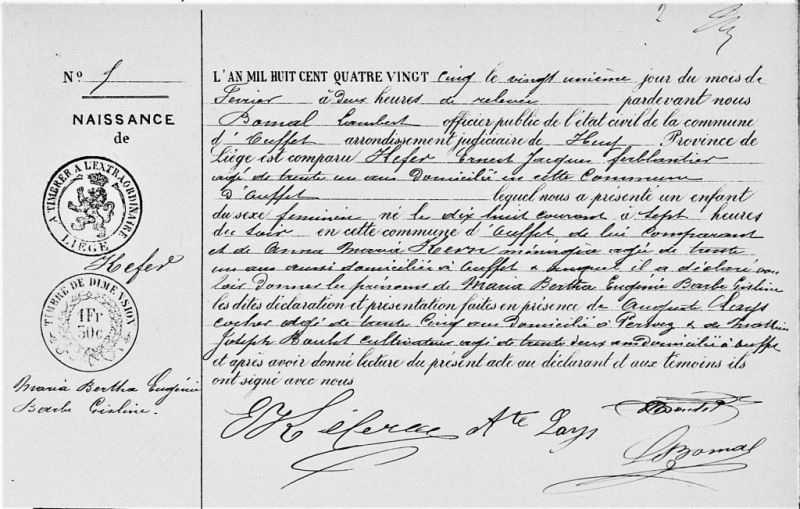 2
Nº 5
NAISSANCE
de
A TIMBRER A L'EXTRAORDINAIRE
LIÉGE
Kefer
TIMBRE DE DIMENSION
1Fr
50c
Maria Bertha Eugénie
Barbe Gisline.
L'AN MIL HUIT CENT QUATRE VINGT cinq le vingt unième jour du mois de
Fevrier à deux heures de relevée pardevant nous
Bomal Lambert officier public de l'état civil de la commune
d'Ouffet arrondissement judiciaire de Huy Province de
Liége est comparu Kefer Ernest Jacques ferblantier
agé de trente un ans domicilié en cette commune
d'Ouffet lequel nous a présenté un enfant
du sexe feminin né le dix huit courant à sept heures
du soir en cette commune d'Ouffet de lui comparant
et de Anna Maria Kern ménagère agée de trente
un ans aussi domiciliée à Ouffet & auquel il a déclaré vou
loir donner les prénoms de Maria Bertha Eugénie Barbe Gisline
les dites déclaration et présentation faites en présence de Auguste Lays
cocher agé de trente cinq ans domicilié à Perwez & de Mathieu
Joseph Boulet cultivateur agé de trente deux ans domicilié à Ouffet
et après avoir donné lecture du présent acte au déclarant et aux témoins ils
ont signé avec nous
E Kefer Ate Lays
LBomal